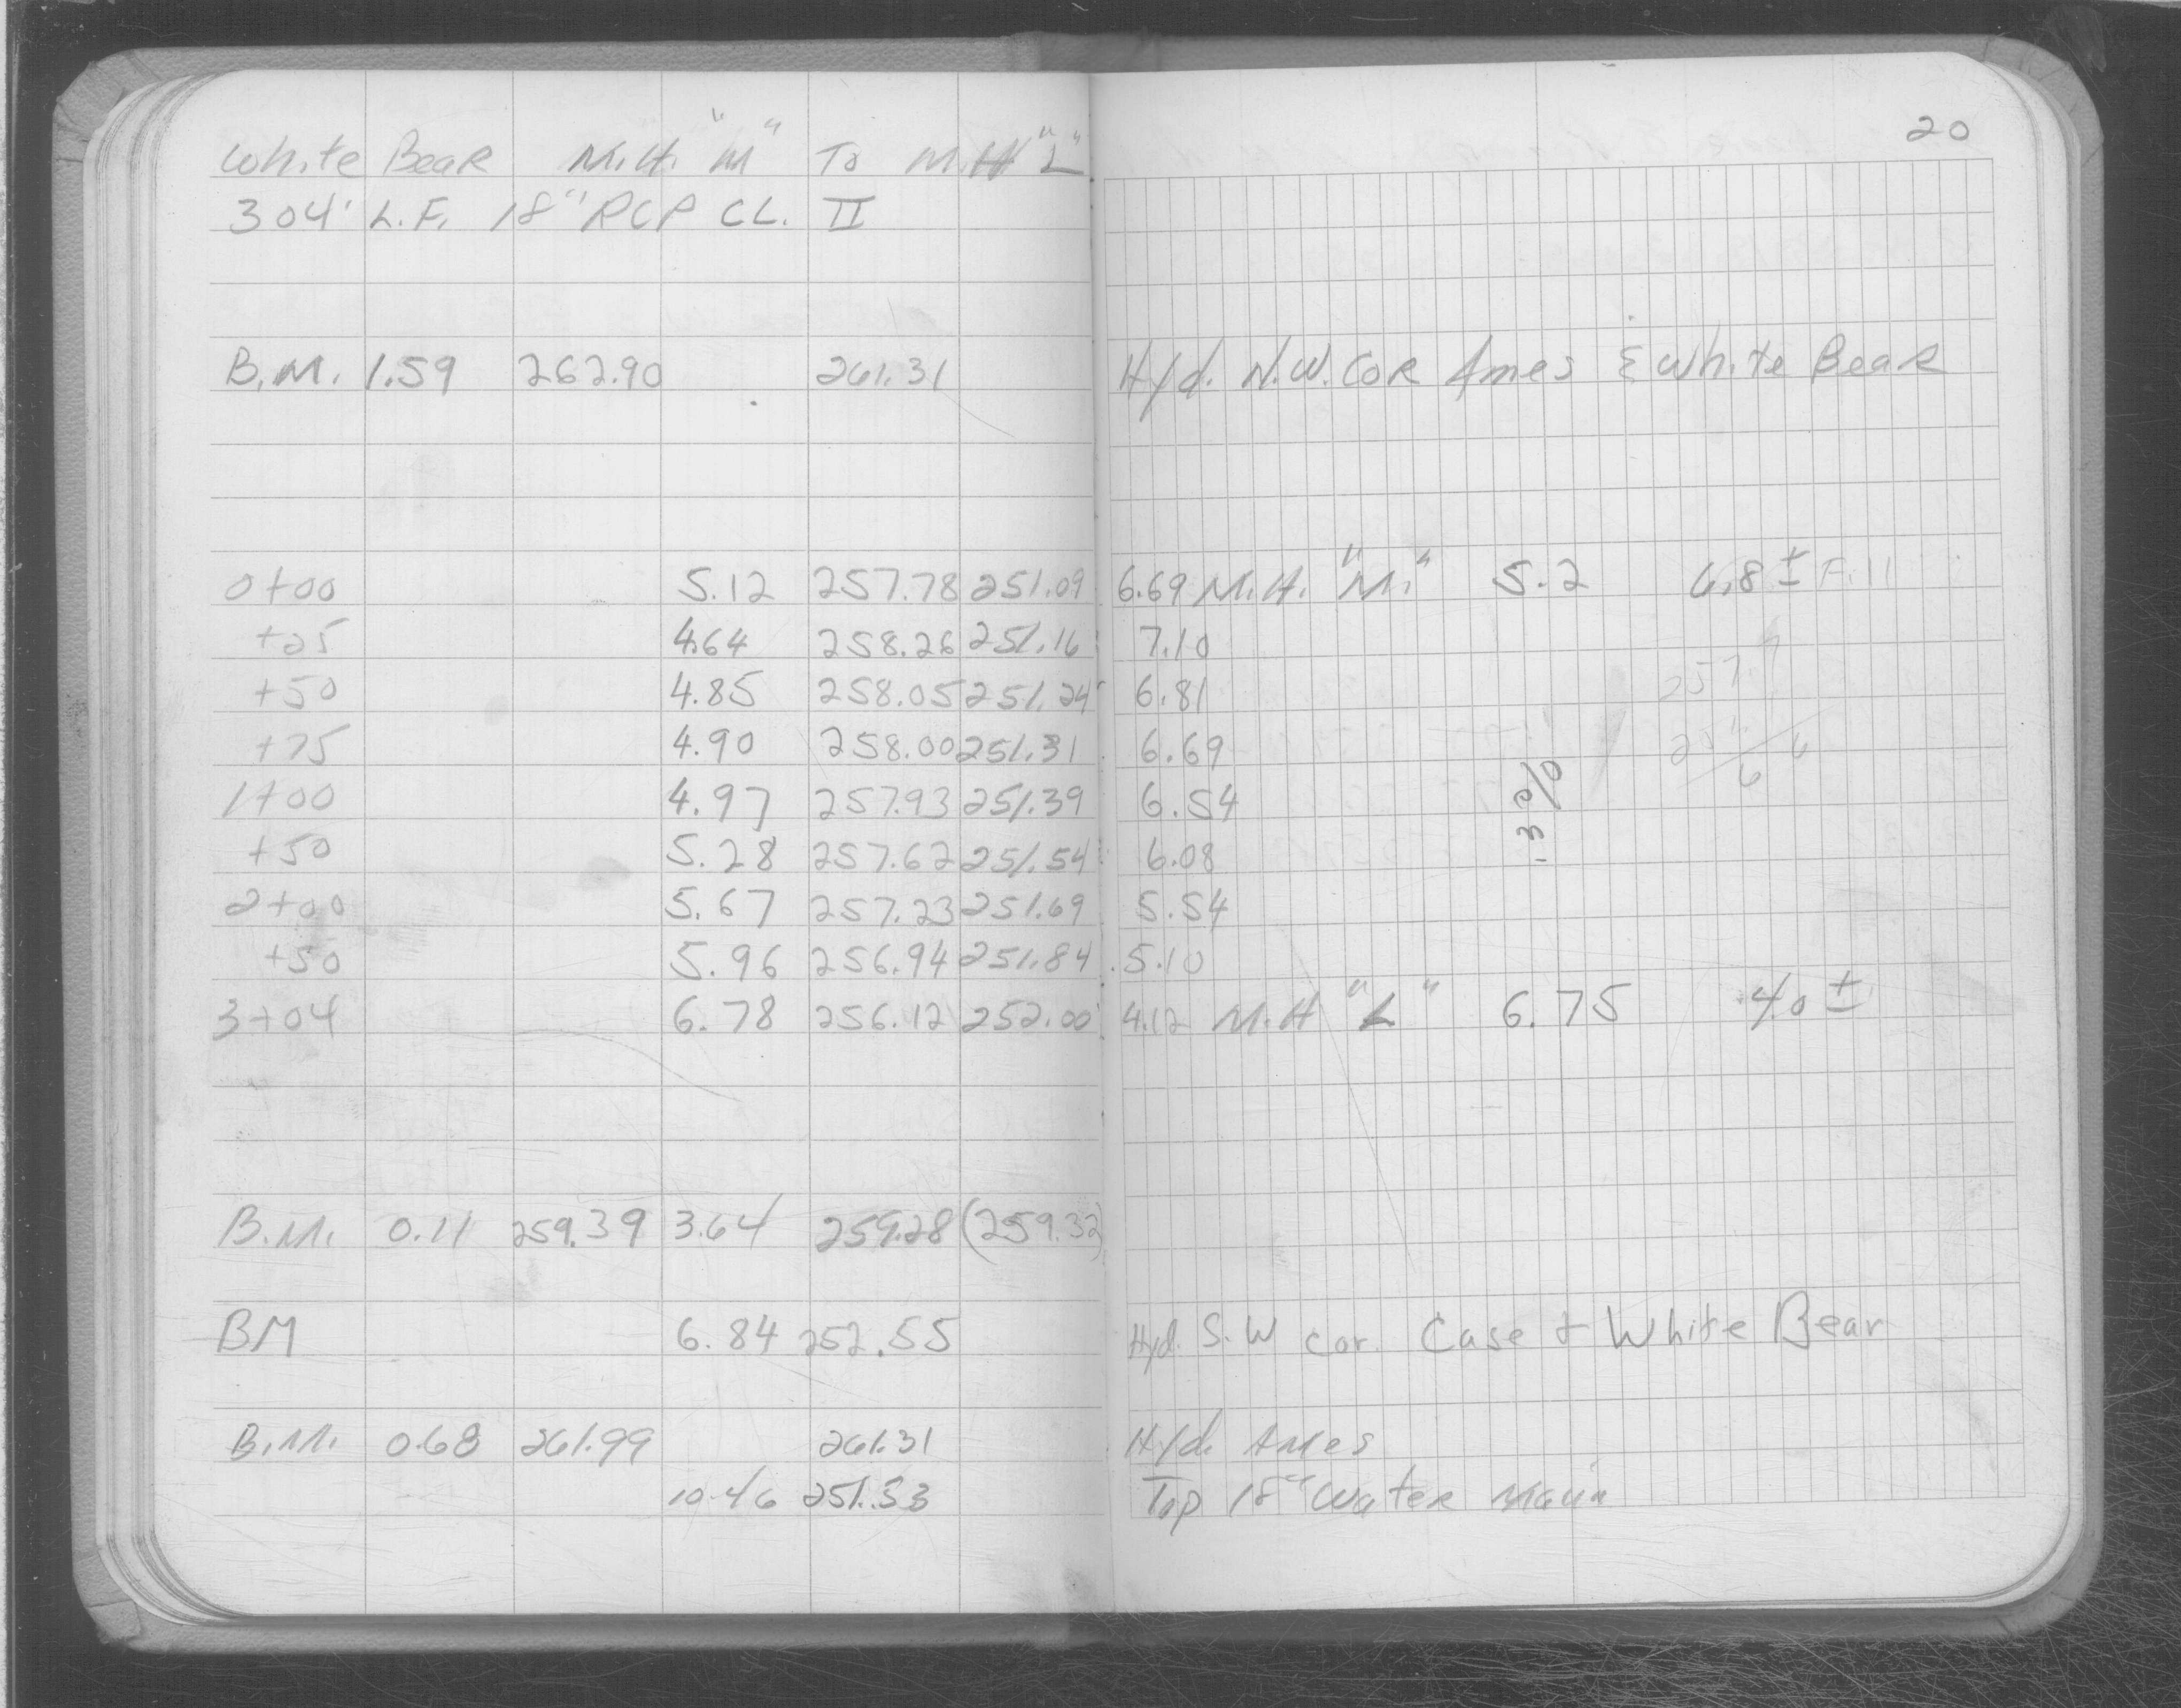 20
White Bear M.H. "M" To M.H "L"
304' L.F. 18" RCP CL. II
B.M. 1.59 262.90 261.31 Hyd. N.W. Cor Ames & White Bear
0+00 5.12 257.78 251.09 6.69 M.H. "M." 5.2 6.8 ± Fill
+25 4.64 258.26 251.16 7.10
+50 4.85 258.05 251.24 6.81
+75 4.90 258.00 251.31 6.69
1+00 4.97 257.93 251.39 6.54
.3%
+50 5.28 257.62 251.54 6.08
2+00 5.67 257.23 251.69 5.54
+50 5.96 256.94 251.84 5.10
3+04 6.78 256.12 252.00 4.12 M.H "L" 6.75 4.0 ±
B.M. 0.11 259.39 3.64 259.28 (259.32)
BM 6.84 252.55 Hyd. S.W cor. Case & White Bear
B.M. 0.68 261.99 261.31 Hyd. Ames
10.46 251.53 Top 18" Water Main